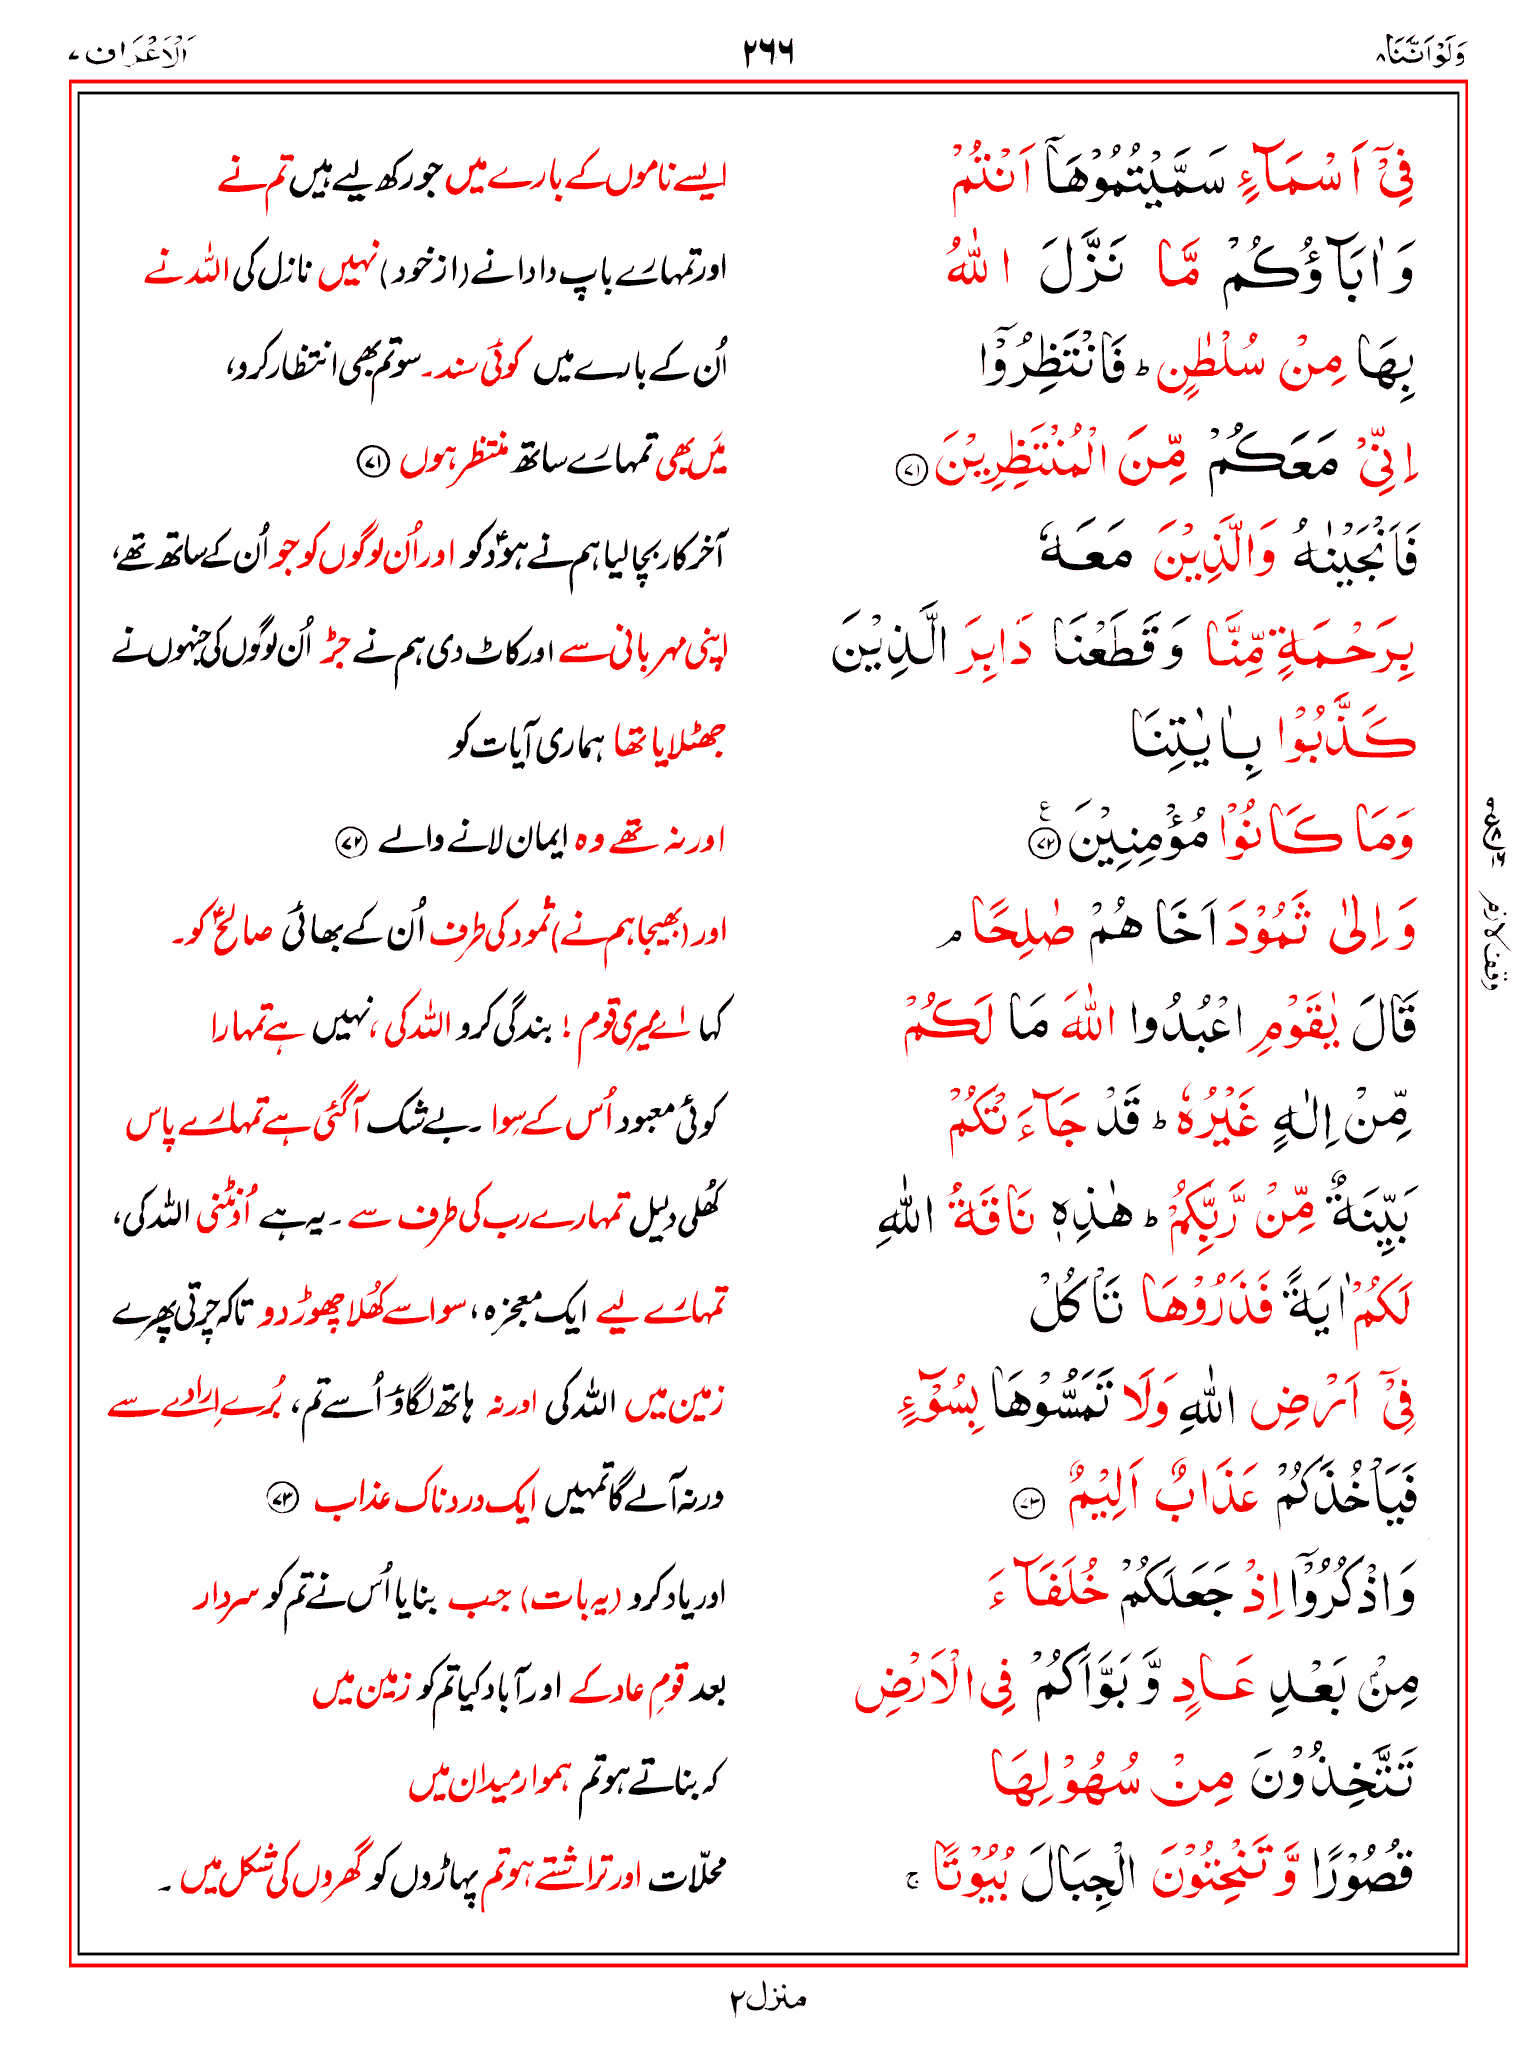 وَلَوْاَنَّنَا ۸
۲۶۶
اَلْاَعْرَاف ۷
فِیْۤ اَسْمَآءٍ سَمَّیْتُمُوْهَاۤ اَنْتُمْ
ایسے ناموں کے بارے میں جو رکھ لیے ہیں تم نے
وَ اٰبَآؤُكُمْ مَّا نَزَّلَ اللّٰهُ
اور تمہارے باپ دادا نے (از خود) نہیں نازل کی اللہ نے
بِهَا مِنْ سُلْطٰنٍ ؕ فَانْتَظِرُوْۤا
اُن کے بارے میں کوئی سند۔ سو تم بھی انتظار کرو،
اِنِّیْ مَعَكُمْ مِّنَ الْمُنْتَظِرِیْنَ ﴿۷۱﴾
مَیں بھی تمہارے ساتھ منتظر ہوں ﴿۷۱﴾
فَاَنْجَیْنٰهُ وَالَّذِیْنَ مَعَهٗ
آخرکار بچا لیا ہم نے ہودؑ کو اور اُن لوگوں کو جو اُن کے ساتھ تھے،
بِرَحْمَةٍ مِّنَّا وَ قَطَعْنَا دَابِرَ الَّذِیْنَ
اپنی مہربانی سے اور کاٹ دی ہم نے جڑ اُن لوگوں کی جنہوں نے
كَذَّبُوْا بِاٰیٰتِنَا
جھٹلایا تھا ہماری آیات کو
وَمَا كَانُوْا مُؤْمِنِیْنَ ﴿۷۲﴾ ع
اور نہ تھے وہ ایمان لانے والے ﴿۷۲﴾
وَ اِلٰی ثَمُوْدَ اَخَا هُمْ صٰلِحًا م
اور (بھیجا ہم نے) ثمود کی طرف اُن کے بھائی صالحؑ کو۔
وقف لازم
قَالَ یٰقَوْمِ اعْبُدُوا اللّٰهَ مَا لَكُمْ
کہا اے میری قوم ! بندگی کرو اللہ کی ، نہیں ہے تمہارا
مِّنْ اِلٰهٍ غَیْرُهٗ ؕ قَدْ جَآءَ تْكُمْ
کوئی معبود اُس کے سِوا ۔ بے شک آگئی ہے تمہارے پاس
بَیِّنَةٌ مِّنْ رَّبِّكُمْ ؕ هٰذِهٖ نَاقَةُ اللّٰهِ
کھُلی دلیل تمہارے رب کی طرف سے ۔ یہ ہے اُونٹنی اللہ کی،
لَكُمْ اٰیَةً فَذَرُوْهَا تَاْكُلْ
تمہارے لیے ایک معجزہ ، سو اسے کھُلا چھوڑ دو تاکہ چرتی پھرے
فِیْۤ اَرْضِ اللّٰهِ وَلَا تَمَسُّوْهَا بِسُوْٓءٍ
زمین میں اللہ کی اور نہ ہاتھ لگاؤ اُسے تم، بُرے اِرادے سے
فَیَاْخُذَكُمْ عَذَابٌ اَلِیْمٌ ﴿۷۳﴾
ورنہ آلے گا تمہیں ایک دردناک عذاب ﴿۷۳﴾
وَاذْكُرُوْۤا اِذْ جَعَلَكُمْ خُلَفَآءَ
اور یاد کرو (یہ بات) جب بنایا اُس نے تم کو سردار
مِنْۢ بَعْدِ عَادٍ وَّ بَوَّاَكُمْ فِی الْاَرْضِ
بعد قومِ عاد کے اور آباد کیا تم کو زمین میں
تَتَّخِذُوْنَ مِنْ سُهُوْلِهَا
کہ بناتے ہو تم ہموار میدان میں
قُصُوْرًا وَّ تَنْحِتُوْنَ الْجِبَالَ بُیُوْتًا ۚ
محلّات اور تراشتے ہو تم پہاڑوں کو گھروں کی شکل میں ۔
منزل ۲